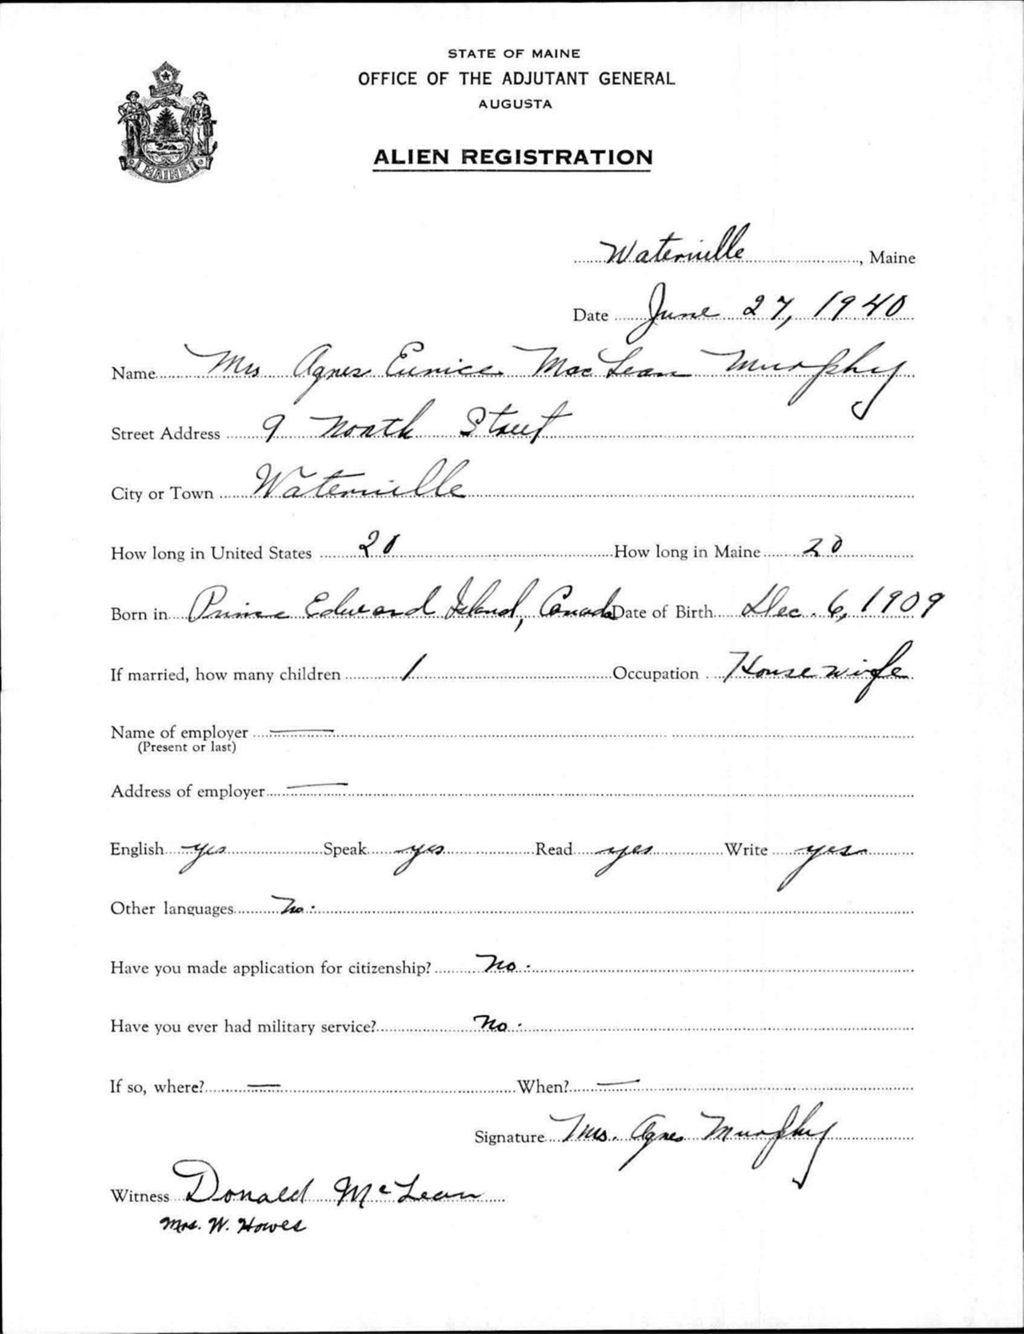 STATE OF MAINE
OFFICE OF THE ADJUTANT GENERAL
AUGUSTA
ALIEN REGISTRATION
MAINE
Waterville, Maine
Date June 27, 1940
Name Mrs Agnes Eunice MacLean Murphy
Street Address 9 North Street
City or Town Waterville
How long in United States 20 How long in Maine 20
Born in Prince Edward Island, Canada Date of Birth Dec. 6, 1909
If married, how many children 1 Occupation Housewife
Name of employer —
(Present or last)
Address of employer —
English yes Speak yes Read yes Write yes
Other languages No.
Have you made application for citizenship? No.
Have you ever had military service? No.
If so, where? — When? —
Signature Mrs. Agnes Murphy
Witness Donald McLean
Mrs. W. Howes